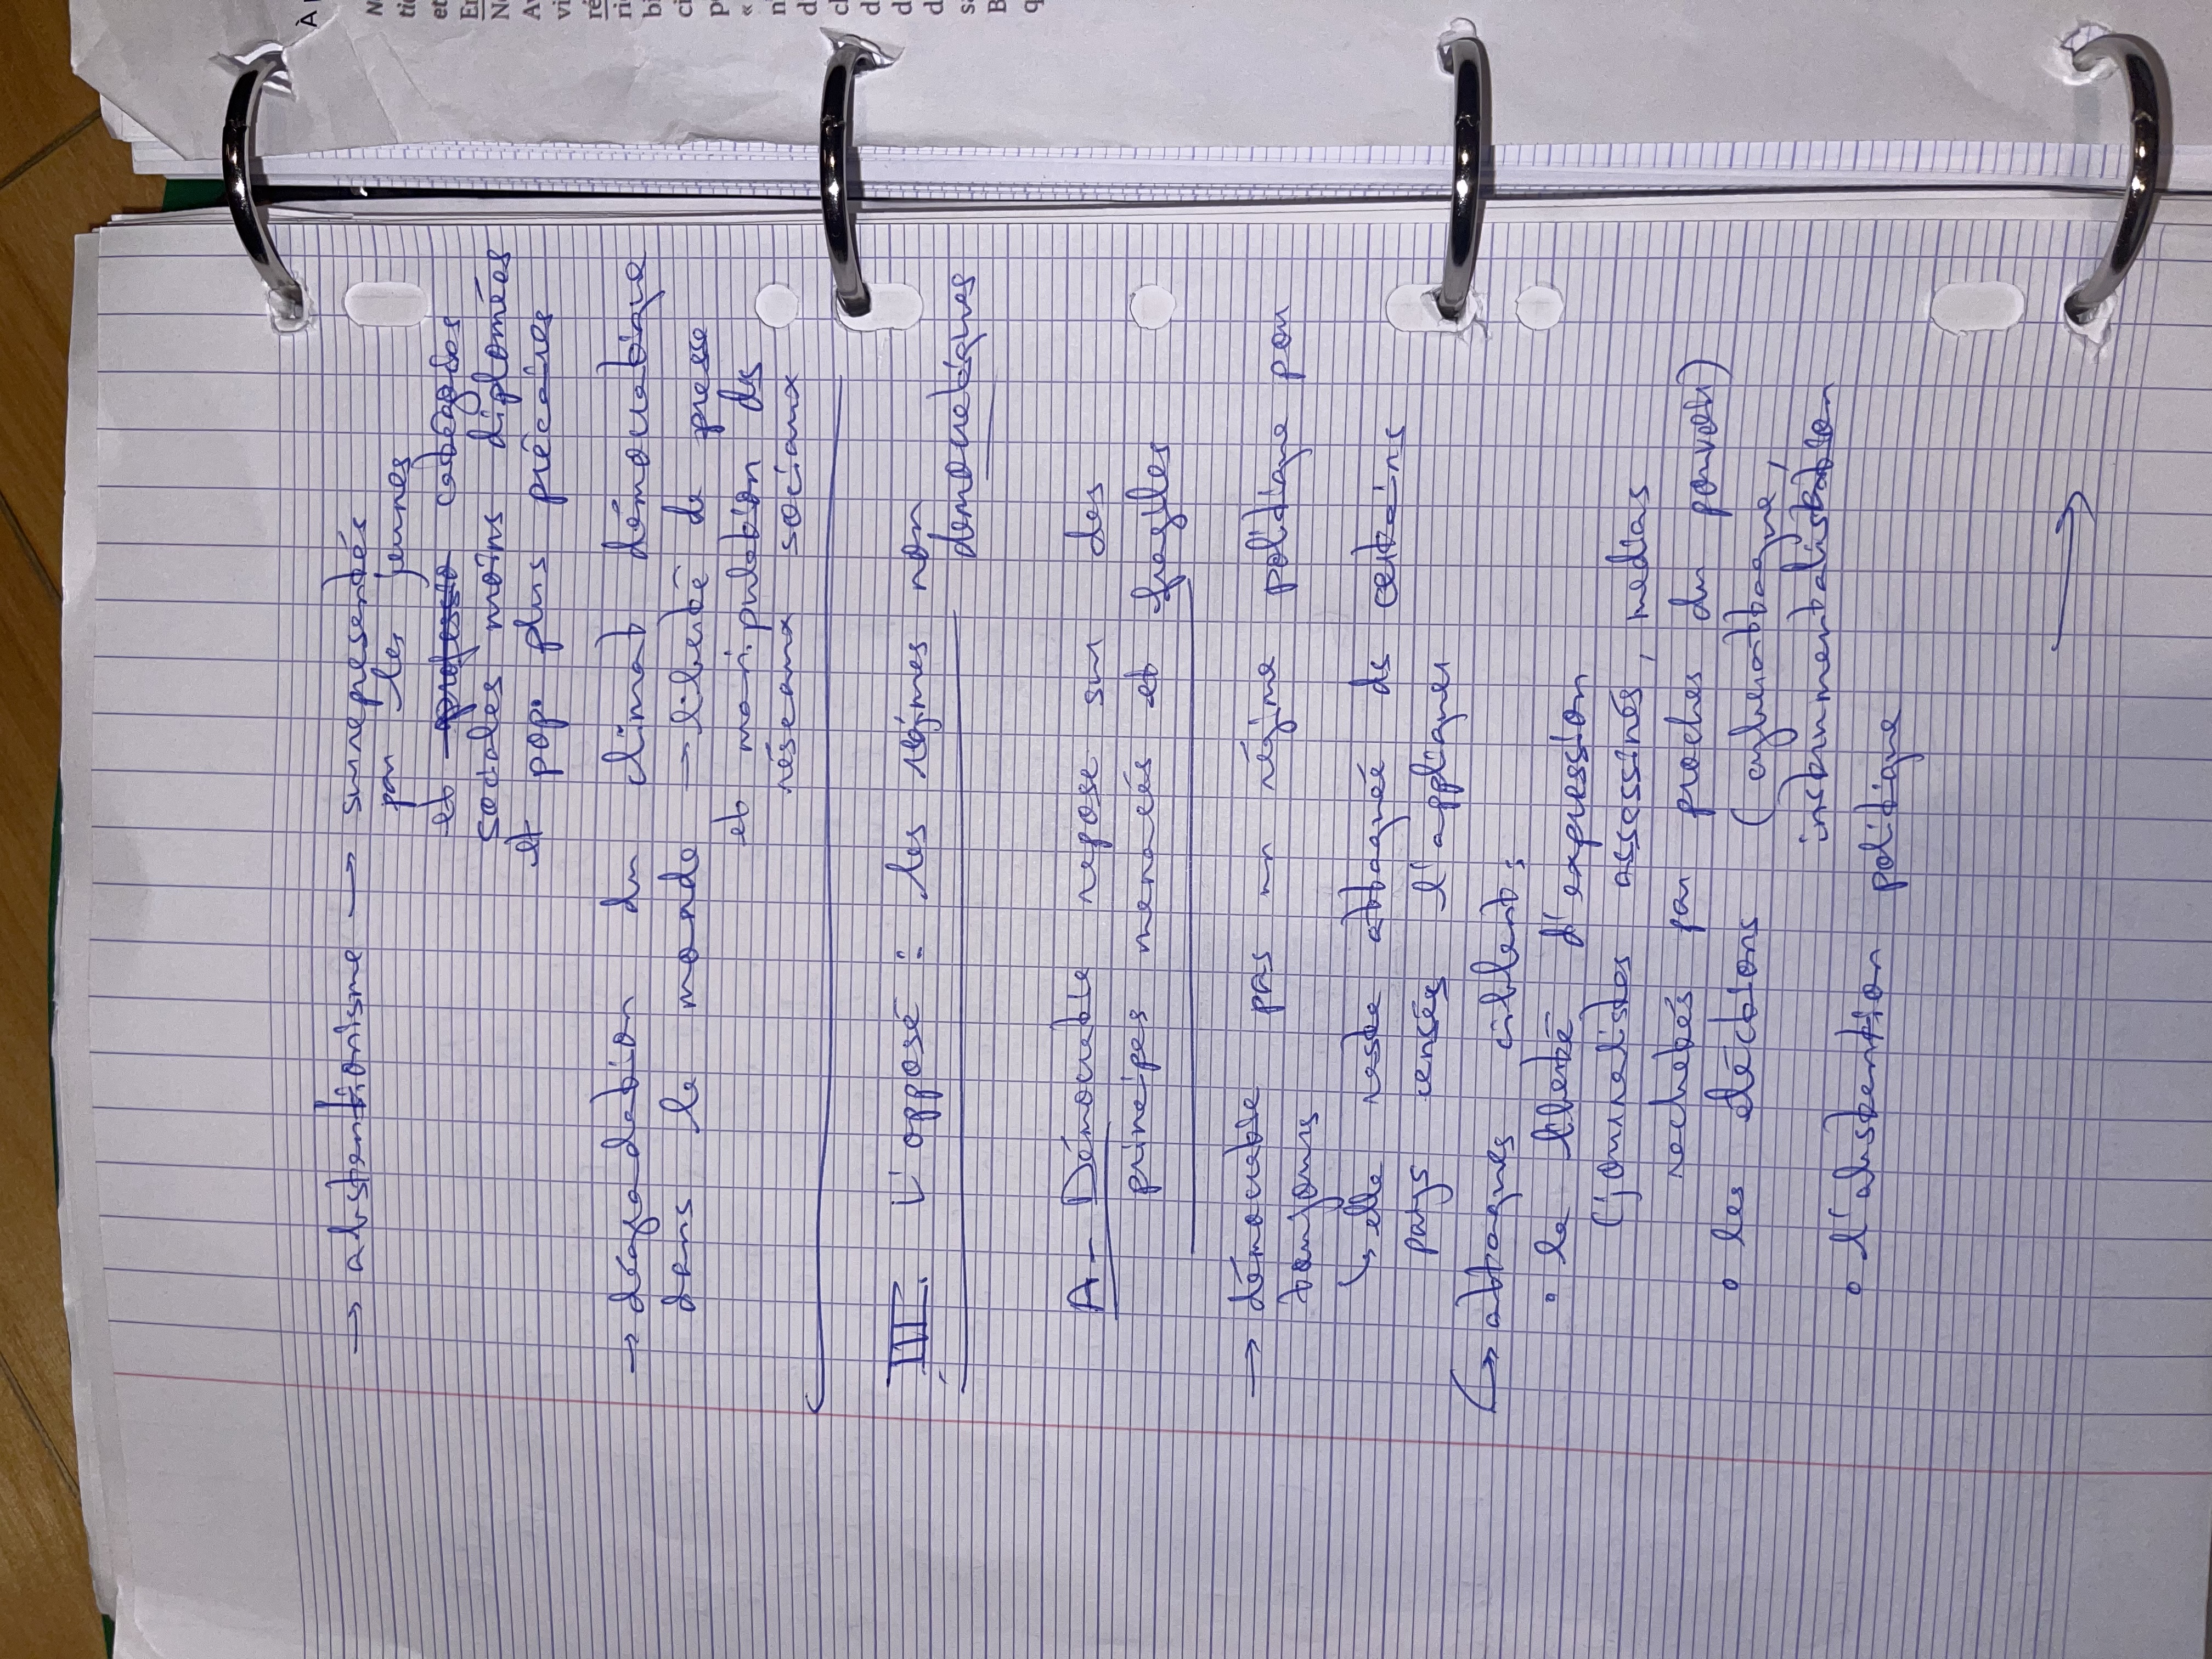 → abstentionisme → surreprésentés
par les jeunes
et professio catégories
sociales moins diplomées
et pop. plus précaires
→ dégradation du climat démocratique
dans le monde → liberté de presse
et manipulation des
réseaux sociaux
III. L'opposé : les régimes non
démocratiques
A- Démocratie repose sur des
principes menacés et fragiles
→ démocratie pas un régime politique pour
toujours
↳ elle reste attaquée ds certains
pays censés l'appliquer
↳ attaques ciblent :
• la liberté d'expression
(journalistes assassinés, medias
rachetés par proches du pouvoir)
• les élections (cyberattaque,
instrumentalisation
• l'abstention politique
→
À